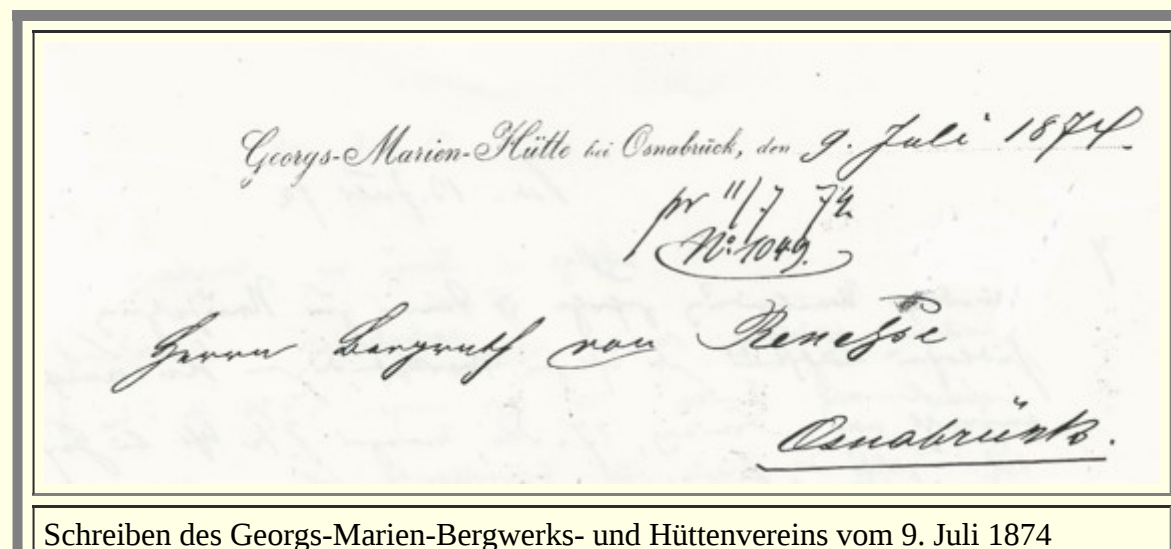 Georgs-Marien-Hütte bei Osnabrück, den 9. Juli 1874
pr 11/7 74.
No: 1049.
Herrn Bergrath von Renesse
Osnabrück.
Schreiben des Georgs-Marien-Bergwerks- und Hüttenvereins vom 9. Juli 1874